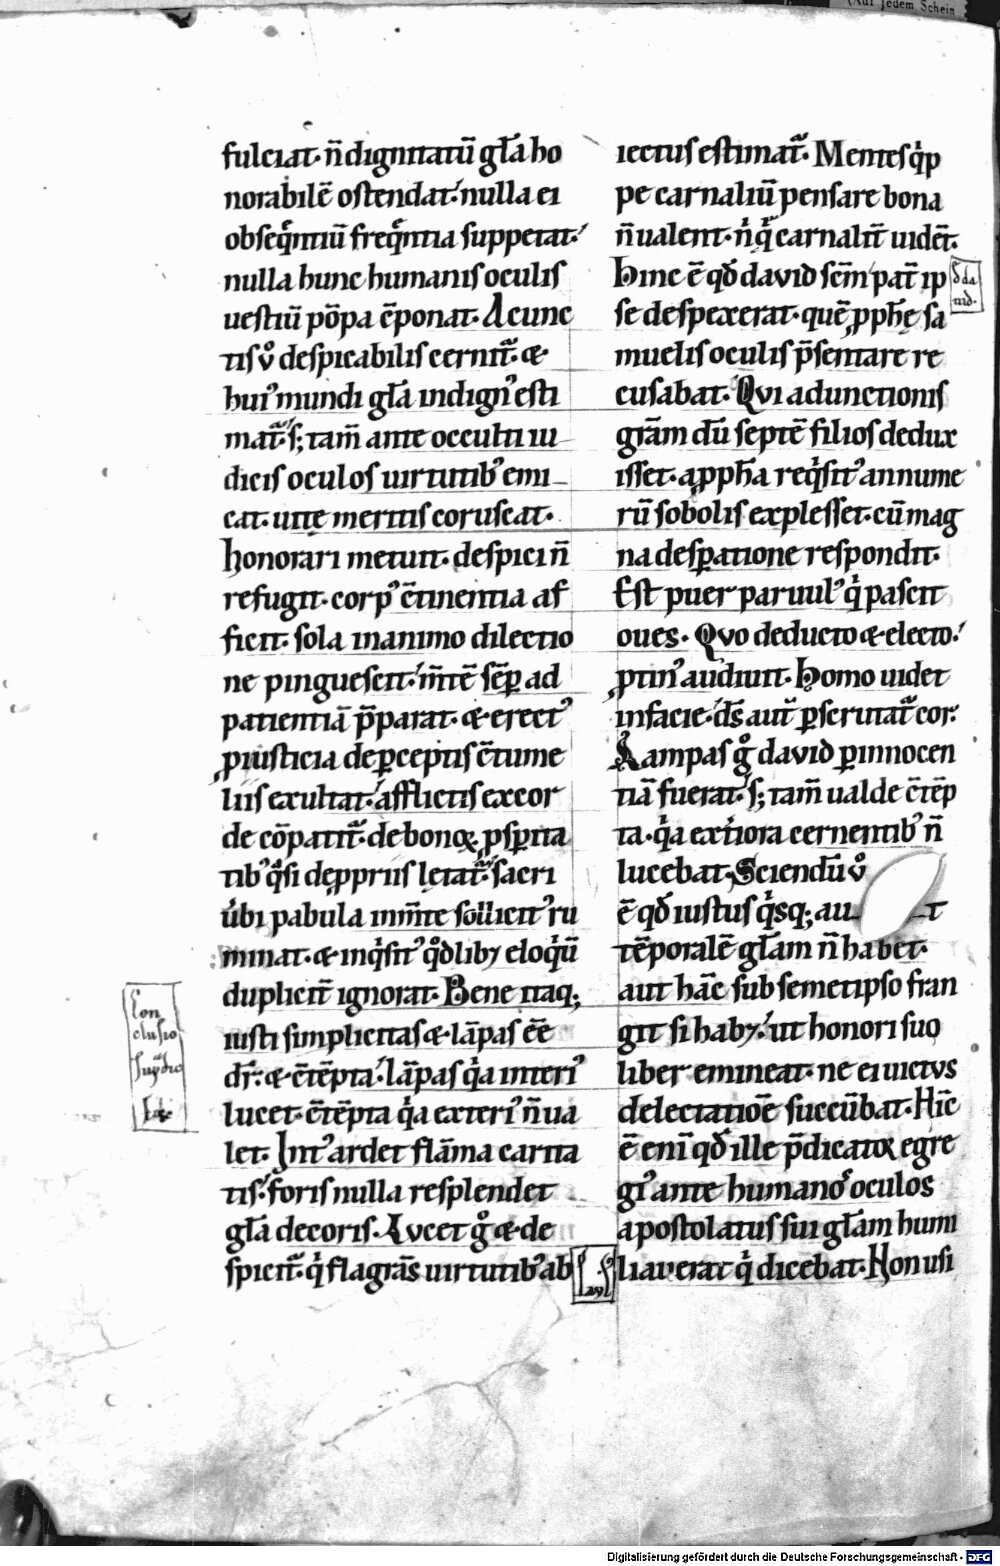 fulciat· n̄ dignitatū gl̄a ho
norabilē ostendat· nulla ei
obseqͥntiū freqͥntia suppetat·
nulla hunc humanis oculis
uestiū pōpa ēponat· A cunc
tis ꝟo despicabilis cernit̄· &·
huiꝰ mundi gl̄a indignꝰ esti
mat̄· s; tam̄ ante occulti iu
dicis oculos uirtutibꝰ emi
cat· uitę meritis coruscat·
honorari metuit· despici n̄
refugit· corpꝰ c̄tinentia af
ficit· sola in animo dilectio
ne pinguescit· m̄tē sēp̄ ad
patientiā p̄parat· & erectꝰ
ꝓ iusticia de ꝑceptis c̄tume
liis exultat· afflictis ex cor
de cōpatit̄· de bonoꝝ ꝓsꝑita
tibꝰ qͣsi de ꝓpriis lętat̄· sacri
ūbi pabula in m̄te sollicitꝰ ru
minat· & inqͥsitꝰ qͦdlibꝫ eloqͥū
duplicit̄ ignorat· Bene itaq;
iusti simplicitas & lāpas ēē
dr̄· & c̄tēpta· lāpas qͥa interiꝰ
lucet· c̄tēpta qͥa exteriꝰ n̄ ua
let· Intꝰ ardet flāma carita
tis· foris nulla resplendet
gl̄a decoris· Lucet gͦ & de
spicit̄· qͥ flagrās uirtutibꝰ ab
iectus estimat̄· Mentes qͥp
pe carnaliū pensare bona
n̄ ualent· n̄ qͥ carnalit̄ uidēt·
Hinc ē qđ dauid sēm pat̄ ip
se despexerat· quē ꝓph̄ę sa
muelis oculis p̄sentare re
cusabat· Qui ad unctionis
grām dū septē filios dedux
isset· a ꝓph̄a reqͥsitꝰ an nume
rū sobolis explesset· cū mag
na desꝑatione respondit·
Est puer paruulꝰ qͥ pascit
oues· Quo deducto & electo·
ꝓtinꝰ audiuit· Homo uidet
in facie· d̄s aut̄ ꝑscrutat̄ cor·
Lampas gͦ dauid ꝑ innocen
tiā fuerat· s; tam̄ ualde c̄tēp
ta· qͥa ext̄iora cernentibꝰ n̄
lucebat· Sciendū ꝟo
ē qđ iustus qͥsq; au t
tēporalē gl̄am n̄ habet·
aut hāc sub semetipso fran
git si habꝫ· ut honori suo
liber emineat· ne ei uictus
delectatiōe succūbat· Hīc
ē eni̅ qđ ille p̄dicator egre
giꝰ ante humanoſ oculos
apostolatus sui gl̄am humi
liauerat qͥ dicebat· Non usi
Con
clusio